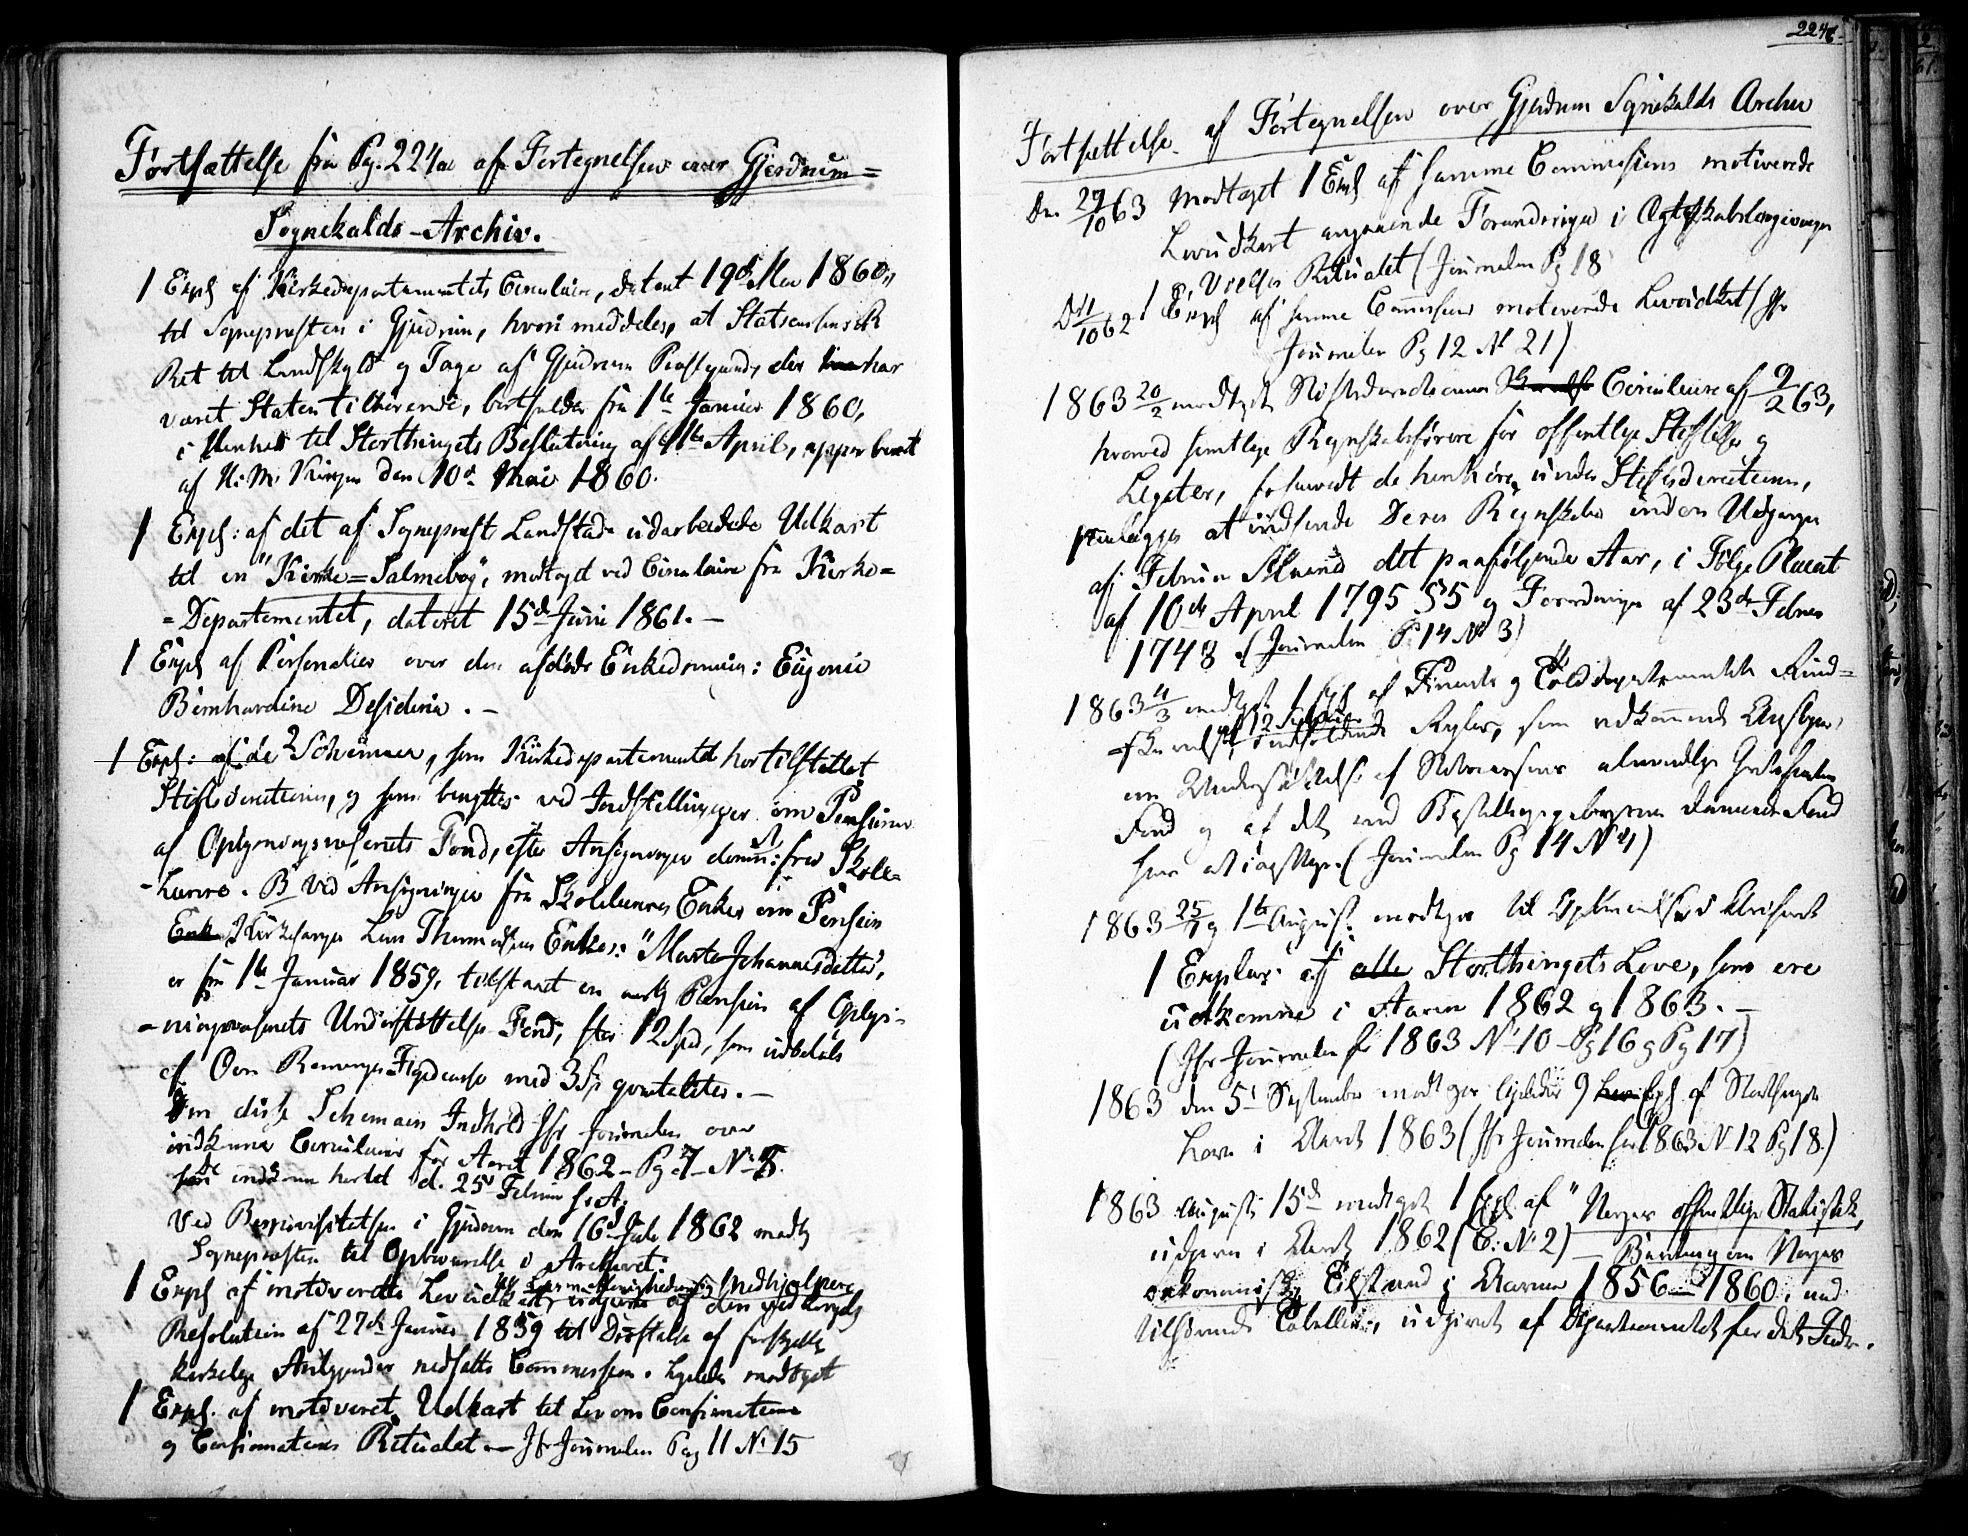 Fortsættelse fra Pg. 224a af Fortegnelsen over Gjerdrum=
Sognekalds-Archiv.
1 Expl af Kirkedepartementets Circulaire, dateret 19de Mai 1860,
til Sognepresten i Gjerdrum, hvori meddeles, at Statscassens
Ret til Landskyld og Tage af Gjerdrum Præstegaard, der har
været Staten tilhørende, bortfalder fra 1te Januar 1860,
i Henhold til Storthingets Beslutning af April, approberet
af H. M. Kongen den 10de Mai 1860.
1 Expl: af det af Sogneprest Landstad udarbeidede Udkast
til en "Kirke=Salmebog", modtaget ved Circulaire fra Kirke=
=Departementet, dateret 15de Juni 1861. –
1 Expl af Personalier over den afdøde Enkedronning: Eugenie
Bernhardine Desideria. –
1 Expl: af de 2 Schemaer, som Kirkedepartementet har tilstillet
Stiftsdirectionen, og som benyttes ved Indstillinger om Pension
af Oplysningsvæsenets Fond, efter Ansøgninger fra Skole-
-Lærere. B Ved Ansøgninger fra Skolelæreres Enker om Pension
Kirkesanger Lars Enke: "Marte Johannesdatter",
er fra 1te Januar 1859, tilstaaet en aarlig Pension af Oplys-
-ningsvæsenets Understøttelses Fond, stor 12 Spd, som udbetales
af Øvre Romeriges Fogedcasse med 3 Sp qvartaliter. –
Om disse Schemaers Indhold Jfr Journalen over
indkomne Circulairer for Aaret 1862 – Pg 7 – No 8.
de indkom hertil d. 25de Februar s. A.
Ved Bispevisitatsen i Gjerdrum den 16de Juli 1862 modtog
Sognepresten til Opbevarelse i Archivet:
1 Expl af motiverede Lovudkast, om Medhjælpere
udgivne af den ved kongelig
Resolution af 27de Januar 1859 til Drøftelse af forskjellige
kirkelige Anliggender nedsatte Commission. Ligeledes modtaget
1 Expl. af motiveret Udkast til Lov om Confirmationen
og Confirmations Ritualet – Jfr Journalen Pag 11 No 15
224b
Fortsættelse af Fortegnelsen over Gjerdrum Sognekalds Archiv
Den 27/10 63 Modtaget 1 Expl af samme Commissions motiverede
Lovudkast angaaende Forandringer i Ægteskabslovgivningen
og Vielses Ritualet (Journalen Pg 18
1/10 62 1 Expl af samme Commissions motiverede Lovudkast (Jfr
Journalen Pg 12 No 21)
1863 20/2 modtaget Stiftsdirectionens Circulaire af 9/2 63,
hvorved samtlige Regnskabsførere for offentlige Stiftelser og
Legater, forsaavidt de henhøre under Stiftsdirectionen,
paalægges at indsende Deres Regnskaber inden Udgangen
af Februar Maaned det paafølgende Aar, i Følge Placat
af 10de April 1795 §5 og Forordningen af 23de Febr
1748 (Journalen Pg 14 No 3)
1863 4/3 modtaget 1 Expl af Finants og Tolddepartementets Kund-
Regler, som vedkommende
en Understøttelse af Statscassens almindelige
Fond og af det ved
have at iagttage. (Journalen Pg 14 No 4)
1863 25/7 og 1te August modtaget til Opbevarelse i Archivet
1 Explar: af Storthingets Love, som ere
udkomne i Aarene 1862 og 1863. –
(Jfr Journalen for 1863 No 10 – Pg 16 og Pg 17)
1863 den 5te September modtaget ligeledes 9 Expl af Storthingets
Love i Aaret 1863 (Jfr Journalen for 1863 No 12 Pg 18.)
1863 August 15de modtaget 1 Expl af "Norges officielle Statistik,
udgiven i Aaret 1862 (C: No 2) – Beretning om Norges
oekonomiske Tilstand i Aarene 1856–1860, med
tilhørende Tabeller, udgivet af Departementet for det Indre.